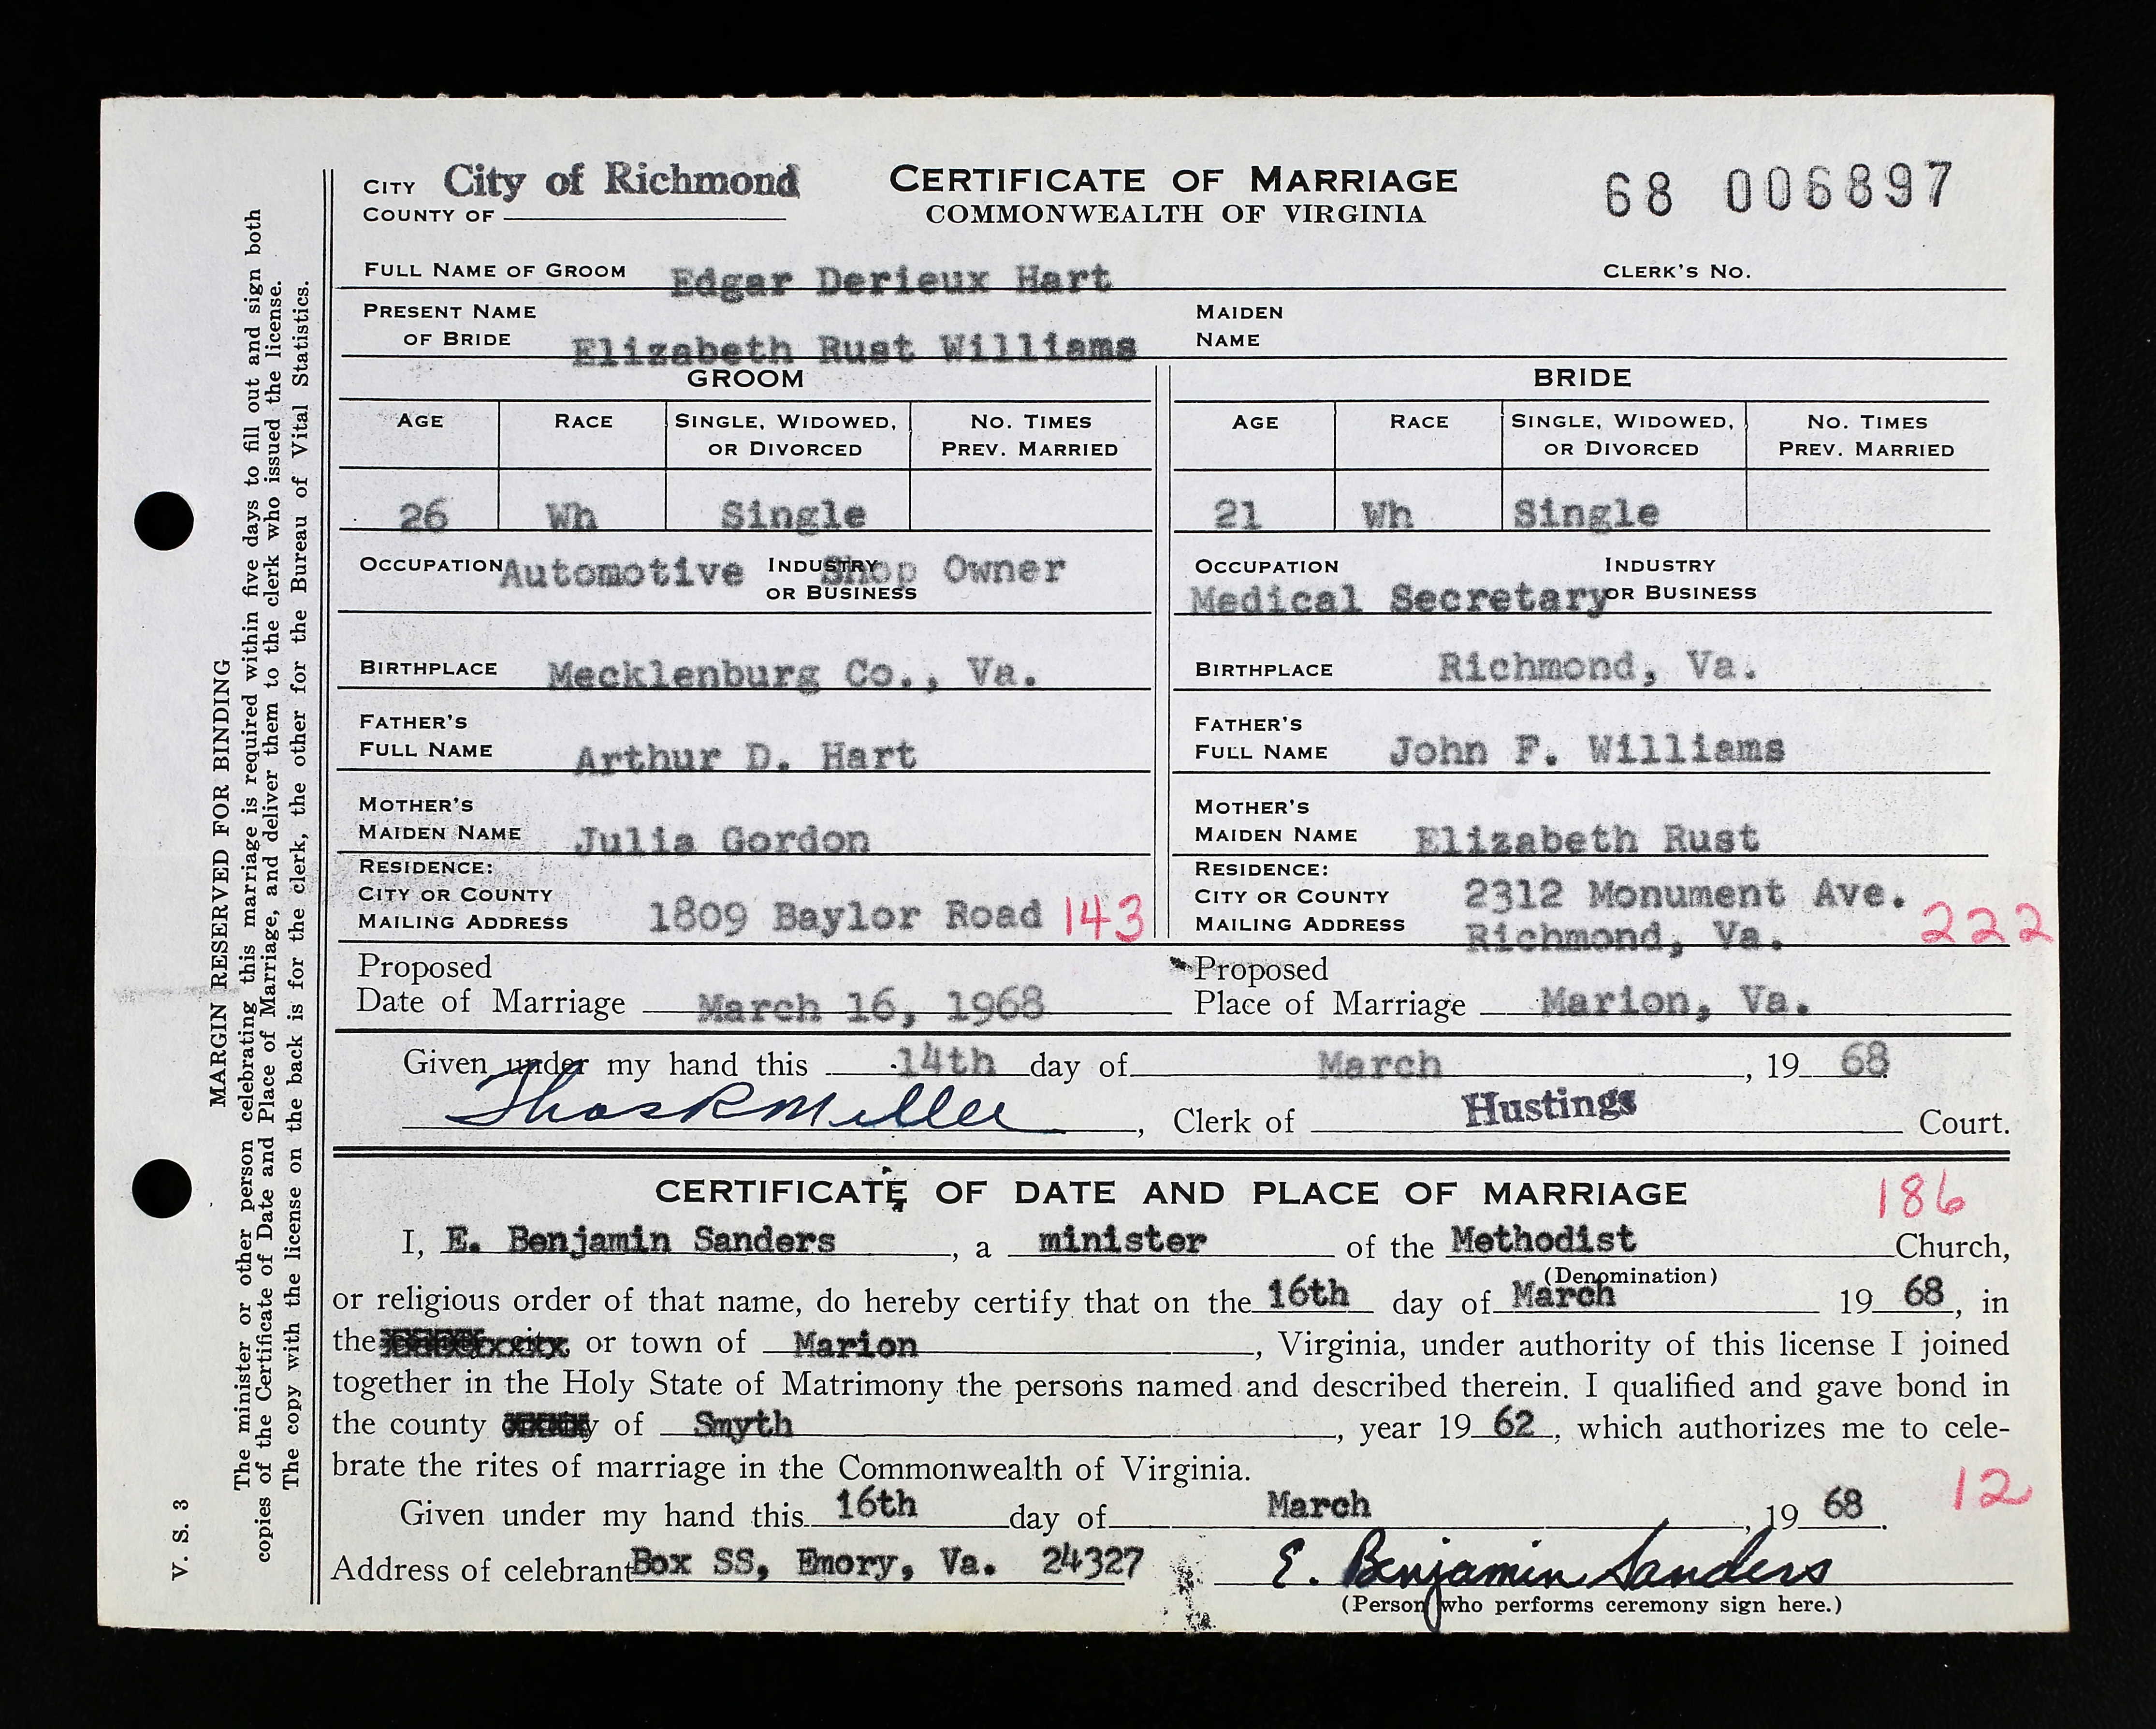 CITY City of Richmond CERTIFICATE OF MARRIAGE 68 006897
COUNTY OF COMMONWEALTH OF VIRGINIA
FULL NAME OF GROOM Edgar Derieux Hart CLERK'S NO.
PRESENT NAME OF BRIDE Elizabeth Rust Williams MAIDEN NAME
GROOM BRIDE
AGE RACE SINGLE, WIDOWED, OR DIVORCED NO. TIMES PREV. MARRIED AGE RACE SINGLE, WIDOWED, OR DIVORCED NO. TIMES PREV. MARRIED
26 Wh Single 21 Wh Single
OCCUPATION Automotive INDUSTRY OR BUSINESS Shop Owner OCCUPATION Medical Secretary INDUSTRY OR BUSINESS
BIRTHPLACE Mecklenburg Co., Va. BIRTHPLACE Richmond, Va.
FATHER'S FULL NAME Arthur D. Hart FATHER'S FULL NAME John F. Williams
MOTHER'S MAIDEN NAME Julia Gordon MOTHER'S MAIDEN NAME Elizabeth Rust
RESIDENCE: CITY OR COUNTY MAILING ADDRESS 1809 Baylor Road 143 RESIDENCE: CITY OR COUNTY MAILING ADDRESS 2312 Monument Ave. Richmond, Va. 222
Proposed Date of Marriage March 16, 1968 Proposed Place of Marriage Marion, Va.
Given under my hand this 14th day of March, 19 68
Thos R Miller, Clerk of Hustings Court.
CERTIFICATE OF DATE AND PLACE OF MARRIAGE 186
I, E. Benjamin Sanders, a minister of the Methodist Church,
(Denomination)
or religious order of that name, do hereby certify that on the 16th day of March 19 68, in
the city or town of Marion, Virginia, under authority of this license I joined
together in the Holy State of Matrimony the persons named and described therein. I qualified and gave bond in
the county of Smyth, year 19 62, which authorizes me to cele-
brate the rites of marriage in the Commonwealth of Virginia.
12
Given under my hand this 16th day of March, 19 68.
Address of celebrant Box SS, Emory, Va. 24327 E. Benjamin Sanders
(Person who performs ceremony sign here.)
MARGIN RESERVED FOR BINDING
The minister or other person celebrating this marriage is required within five days to fill out and sign both
copies of the Certificate of Date and Place of Marriage, and deliver them to the clerk who issued the license.
The copy with the license on the back is for the clerk, the other for the Bureau of Vital Statistics.
V. S. 3